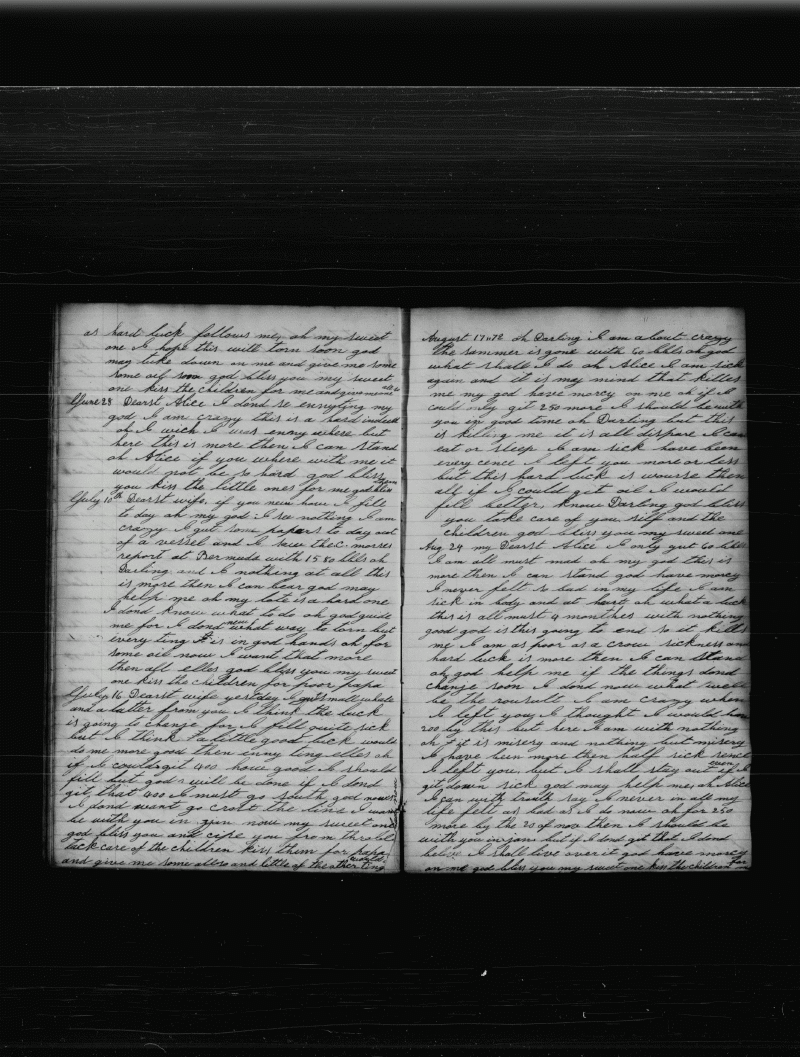 as hard luck follows me, oh my sweet
one I hope this will torn soon god
may take down on me and give me some
some oil soon god bless you my sweet
one kiss the children for me and give mama
June 28 Dearst Alice I dond se ennyting my
god I am crazy this is a hard indeed
oh I wich I was enny where but
here this is more then I can stand
oh Alice if you where with me it
would not be so hard god bless
you kiss the little ones for me god bless
July 10th Dearst wife, if you new how I fill
to day oh my god I see nothing I am
crazy I got some papers to day out
of a vessel and I saw the C. morses
report at Bermuda with 1580 bbls oh
Darling and I nothing at all this
is more then I can bear god may
help me oh my lot is a hard one
I dond know what to do oh god guide
me for I dond new what way to torn but
every ting it is in god hands oh for
some oil now I want that more
then all elles god bless you my sweet
one kiss the children for poor papa
July 16 Dearst wife yestday I got matt whale
and a latter from you I think the luck
is going to change for I fill quite sick
but I think a little good luck would
do me more good then enny ting elles oh
if I could git 400 how good I should
fill but gods will be done if I dond
git that 400 I must go south god nows
I dond want go crost the line I want
be with you in gun now my sweet one
god bless you and cepe you from the ill
tack care of the children kiss them for papa
and give me some allso and little of the other ting
August 17n72 oh Darling I am about crazy
the sommer is gone with 60 bbls oh god
what shall I do oh Alice I am sick
again and it is my mind that killes
me my god have mercy on me oh if I
could only git 250 more I should be with
you in good time oh Darling but this
is killing me it is all dispare I can
eat or sleep I am sick have been
every cence I left you more or less
but this hard luck is wourse then
all if I could git oil I would
fill better, know Darling god bless
you take care of you self and the
children god bless you my sweet one
Aug 24 my Dearst Alice I only got 60 bbls
I am all must mad oh my god this is
more then I can stand god have mercy
I never felt so bad in my life I am
sick in body and at hart oh what a luck
this is all must 9 monthes with nothing
good god is this going to end so it kills
me I am as poor as a crow sickness and
hard luck is more then I can stand
oh god help me if the things dond
change soon I dond now what well
be the rousult I am crazy when
I left you I thought I would have
200 by this but here I am with nothing
oh it is misery and nothing but misery
I have been more then half sick sence
I left you, but I shall stay out even if I
git down sick god may help me, oh Alice
I can with trouth say I never in all my
life felt as bad as I do now oh for 250
more by the 20 of nov then I should be
with you in jan but if I dond git that I dond
belive I shall live over it god have mercy
on me god bless you my sweet one kiss the children for